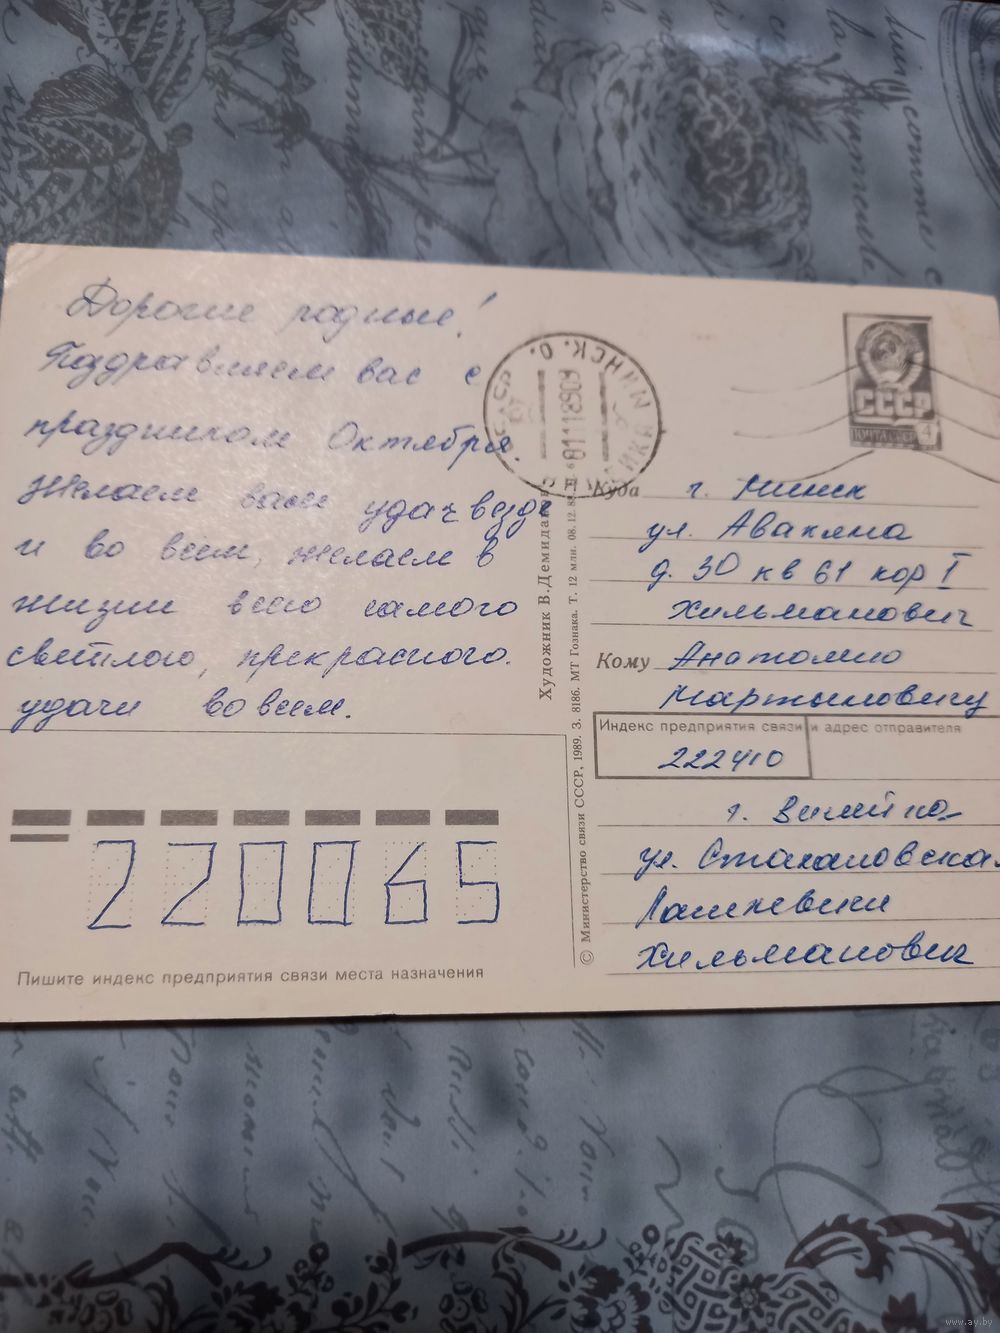 Дорогие родные!
Поздравляем вас с
праздником Октября
Желаем вам удач везде
и во всем, желаем в
жизни всего самого
светлого, прекрасного.
удачи во всем.
220065
Пишите индекс предприятия связи места назначения
Художник В.Демидов
© Министерство связи СССР, 1989. З. 8186. МТ Гознака. Т. 12 млн. 08.12.8
МИНСК
81118909
СССР
ПОЧТА 4
Куда г. Минск
ул. Авакяна
д. 30 кв 61 кор I
Хильманович
Кому Анатолию
Мартыновичу
Индекс предприятия связи и адрес отправителя
222410
г. Вилейка
ул. Стахановская
Хильманович
www.ay.by